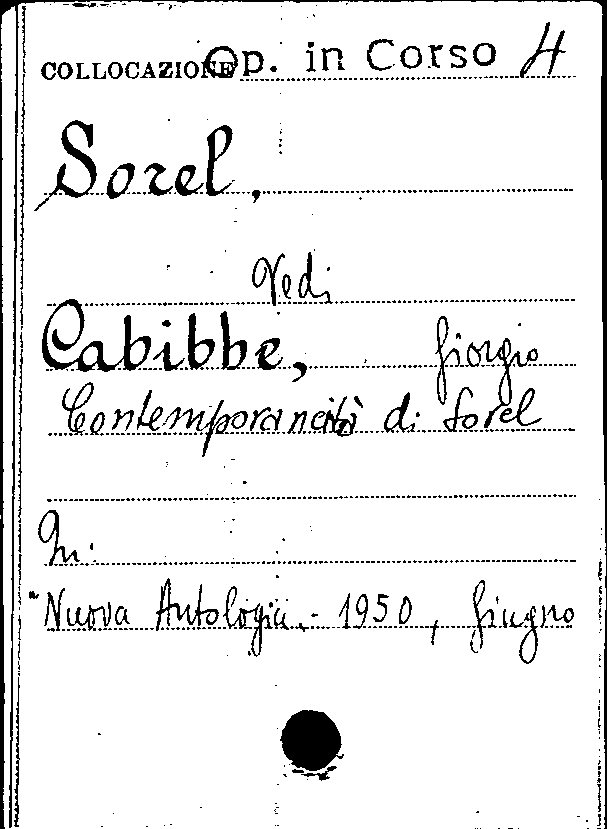 COLLOCAZIONE Op. in Corso 4
Sorel,
Vedi
Cabibbe, Giorgio
Contemporaneità di Sorel
In:
"Nuova Antologia. - 1950, Giugno